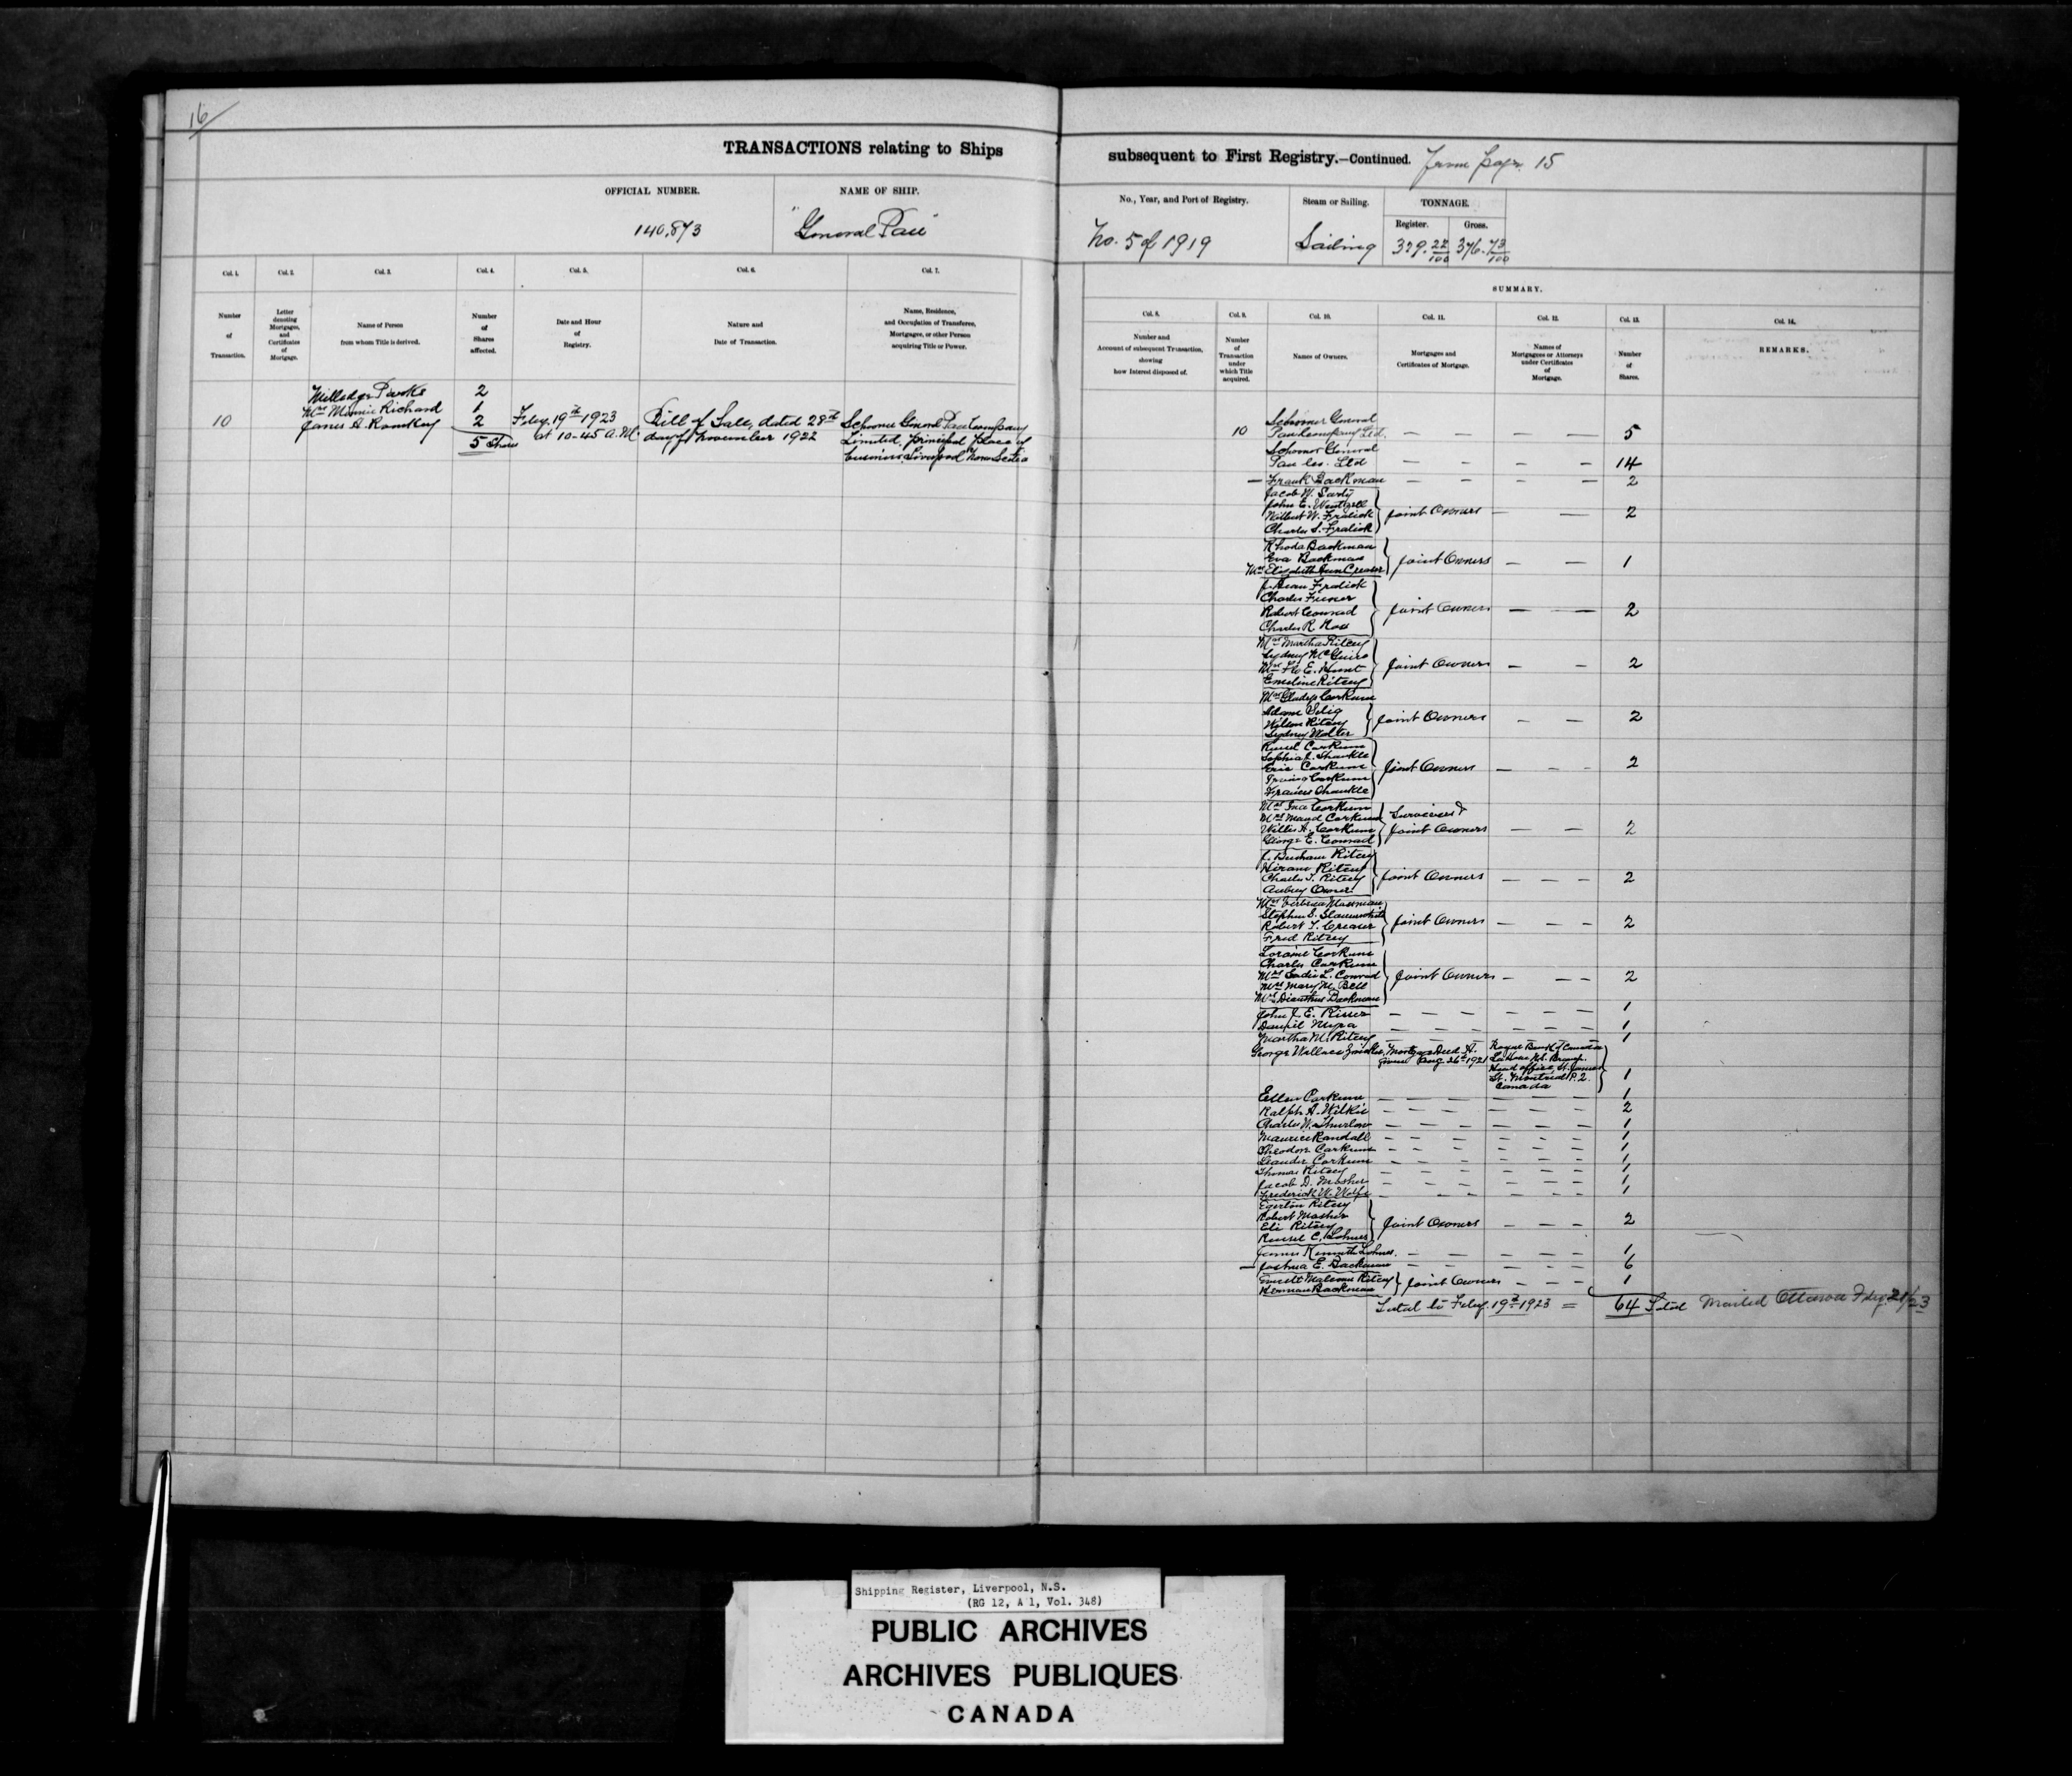 16
TRANSACTIONS relating to Ships
OFFICIAL NUMBER.
NAME OF SHIP.
140,873
"General Pau"
Col. 1.
Col. 2.
Col. 3.
Col. 4.
Col. 5.
Col. 6.
Col. 7.
Number
of
Transaction.
Letter
denoting
Mortgages,
and
Certificates
of
Mortgage.
Name of Person
from whom Title is derived.
Number
of
Shares
affected.
Date and Hour
of
Registry.
Nature and
Date of Transaction.
Name, Residence,
and Occupation of Transferee,
Mortgagee, or other Person
acquiring Title or Power.
Milledge 2
Mrs Minnie Richard 1
10 James A. 2 Feby. 19th 1923 Bill of Sale, dated 28th Schooner General Pau Company
5 Shares at 10-45 A.M. day of November 1922 Limited, principal place of
business, Liverpool Nova Scotia
subsequent to First Registry.—Continued. From page 15
No., Year, and Port of Registry.
Steam or Sailing.
TONNAGE.
Register.
Gross.
No. 5 of 1919
Sailing
329.22/100
376.73/100
SUMMARY.
Col. 8.
Col. 9.
Col. 10.
Col. 11.
Col. 12.
Col. 13.
Col. 14.
Number and
Account of subsequent Transaction,
showing
how Interest disposed of.
Number
of
Transaction
under
which Title
acquired.
Names of Owners.
Mortgages and
Certificates of Mortgage.
Names of
Mortgagees or Attorneys
under Certificates
of
Mortgage.
Number
of
Shares.
REMARKS.
Schooner General
10 Pau Company Ltd. — — — — 5
Schooner General
Pau Co. Ltd — — — — 14
— Frank Backman — — — — 2
Jacob W.
John E. Wentzell
Wilbert W. Fralick Joint Owners — — 2
Charles S. Fralick
Rhoda Backman
Eva Backman Joint Owners — — 1
Mrs Elizabeth Ann Creaser
Fralick
Charles
Robert Conrad Joint Owners — — 2
Charles R. Ross
Mrs Martha Ritcey
Sydney McGuire
Mrs E. Hunt Joint Owners — — 2
Emeline Ritcey
Mrs Gladys Corkum
Adam Selig Joint Owners — — 2
Ritcey
Sydney Wolter
Russel Corkum
Sophia Shankle
Eric Corkum Joint Owners — — — 2
Irving Corkum
Frances Shankle
Mrs Ina Corkum
Mrs Maud Corkum
Willis A. Corkum Joint Owners — — 2
George E. Conrad
Ritcey
Hiram Ritcey
Charles T. Ritcey Joint Owners — — — 2
Aubrey
Mrs
Stephen S.
Robert T. Creaser Joint Owners — — — 2
Fred Ritcey
Loraine Corkum
Charles Corkum
Mrs Sadie L. Conrad Joint Owners — — — 2
Mrs Mary M. Bell
Mrs Backman
John J. E. Risser — — — — — — 1
Daniel Myra — — — — — — 1
Martha M. Ritcey — — — — — — 1
George Wallace Mortgage Deed A. Royal Bank of Canada
given Aug 26th 1921 LaHave N.S. Branch.
Head office, St. James
St. Montreal P.Q. 1
Canada
Ellen Corkum — — — — — — 1
Ralph A. Wilkie — — — — — — 2
Charles W. — — — — — — 1
Maurice Randall — — — — — — 1
Theodore Corkum — — — — — — 1
Leander Corkum — — — — — — 1
Thomas Ritcey — — — — — — 1
Jacob D. Mosher — — — — — — 1
Frederick W. Wolfe — — — — — — 1
Egerton Ritcey
Robert Mosher Joint Owners — — — 2
Eli Ritcey
Russel C. Lohnes
James Kenneth Lohnes — — — — — — 1
— Joshua E. Backman — — — — — — 6
Malcom Ritcey Joint Owners — — — 1
Herman Backman
Total to Feby. 19th 1923 = 64 Total Mailed Ottawa Feby. 21/23
Shipping Register, Liverpool, N.S.
(RG 12, A 1, Vol. 348)
PUBLIC ARCHIVES
ARCHIVES PUBLIQUES
CANADA